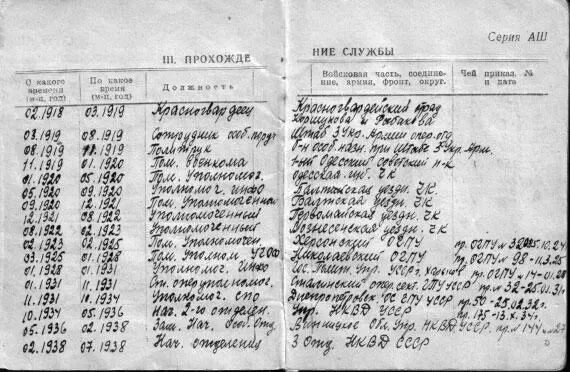 Серия АШ
III. ПРОХОЖДЕНИЕ СЛУЖБЫ
С какого времени (м-ц, год) По какое время (м-ц, год) Должность Войсковая часть, соединение, армия, фронт, округ. Чей приказ, № и дата
02.1918 03.1919 Красногвардеец Красногвардейский отряд
Коршунова и Рыбакова
03.1919 08.1919 Сотрудник особ. Штаб 3 Укр. Армии опер. отд
08.1919 11.1919 Политрук б-н особ. назн. при Штабе 3 Укр. Арм.
11.1919 01.1920 Пом. военкома 1-ый Одесский советский п-к
01.1920 05.1920 Пом. Уполномоч. Одесская губ. ЧК
05.1920 09.1920 Уполномоч. инфо Балтская уездн. ЧК
09.1920 12.1921 Пом. Уполномоченный Балтская уездн. ЧК
12.1921 08.1922 Уполномоченный Первомайская уездн. ЧК
08.1922 02.1923 Уполномоченный Вознесенская уездн. ЧК
02.1923 02.1925 Пом. Уполномочен. Херсонский ОГПУ пр. ОГПУ №
03.1925 01.1928 Пом. Уполном Николаевский ОГПУ пр. ОГПУ № 98-11.3.25
01.1928 01.1931 Уполномоч. Инфо УССР г. Харьков пр. ОГПУ № 14-01.
01.1931 11.1931 Ст. оперуполномоч. Сталинский опер. сект. ГПУ УССР № 32-25.01.31г
11.1931 10.1934 Уполномоч. СПО Днепропетровск. ОС ГПУ УССР пр. 50-25.02.32г.
10.1934 05.1936 Нач. 2-го отделен. Упр. НКВД УССР пр. 175-13.X.34г.
05.1936 02.1938 Зам. Нач. Особ. Отд. Винницкое Обл. Упр. НКВД УССР. пр. № 144
02.1938 07.1938 Нач. отделения 3 Отд. НКВД СССР